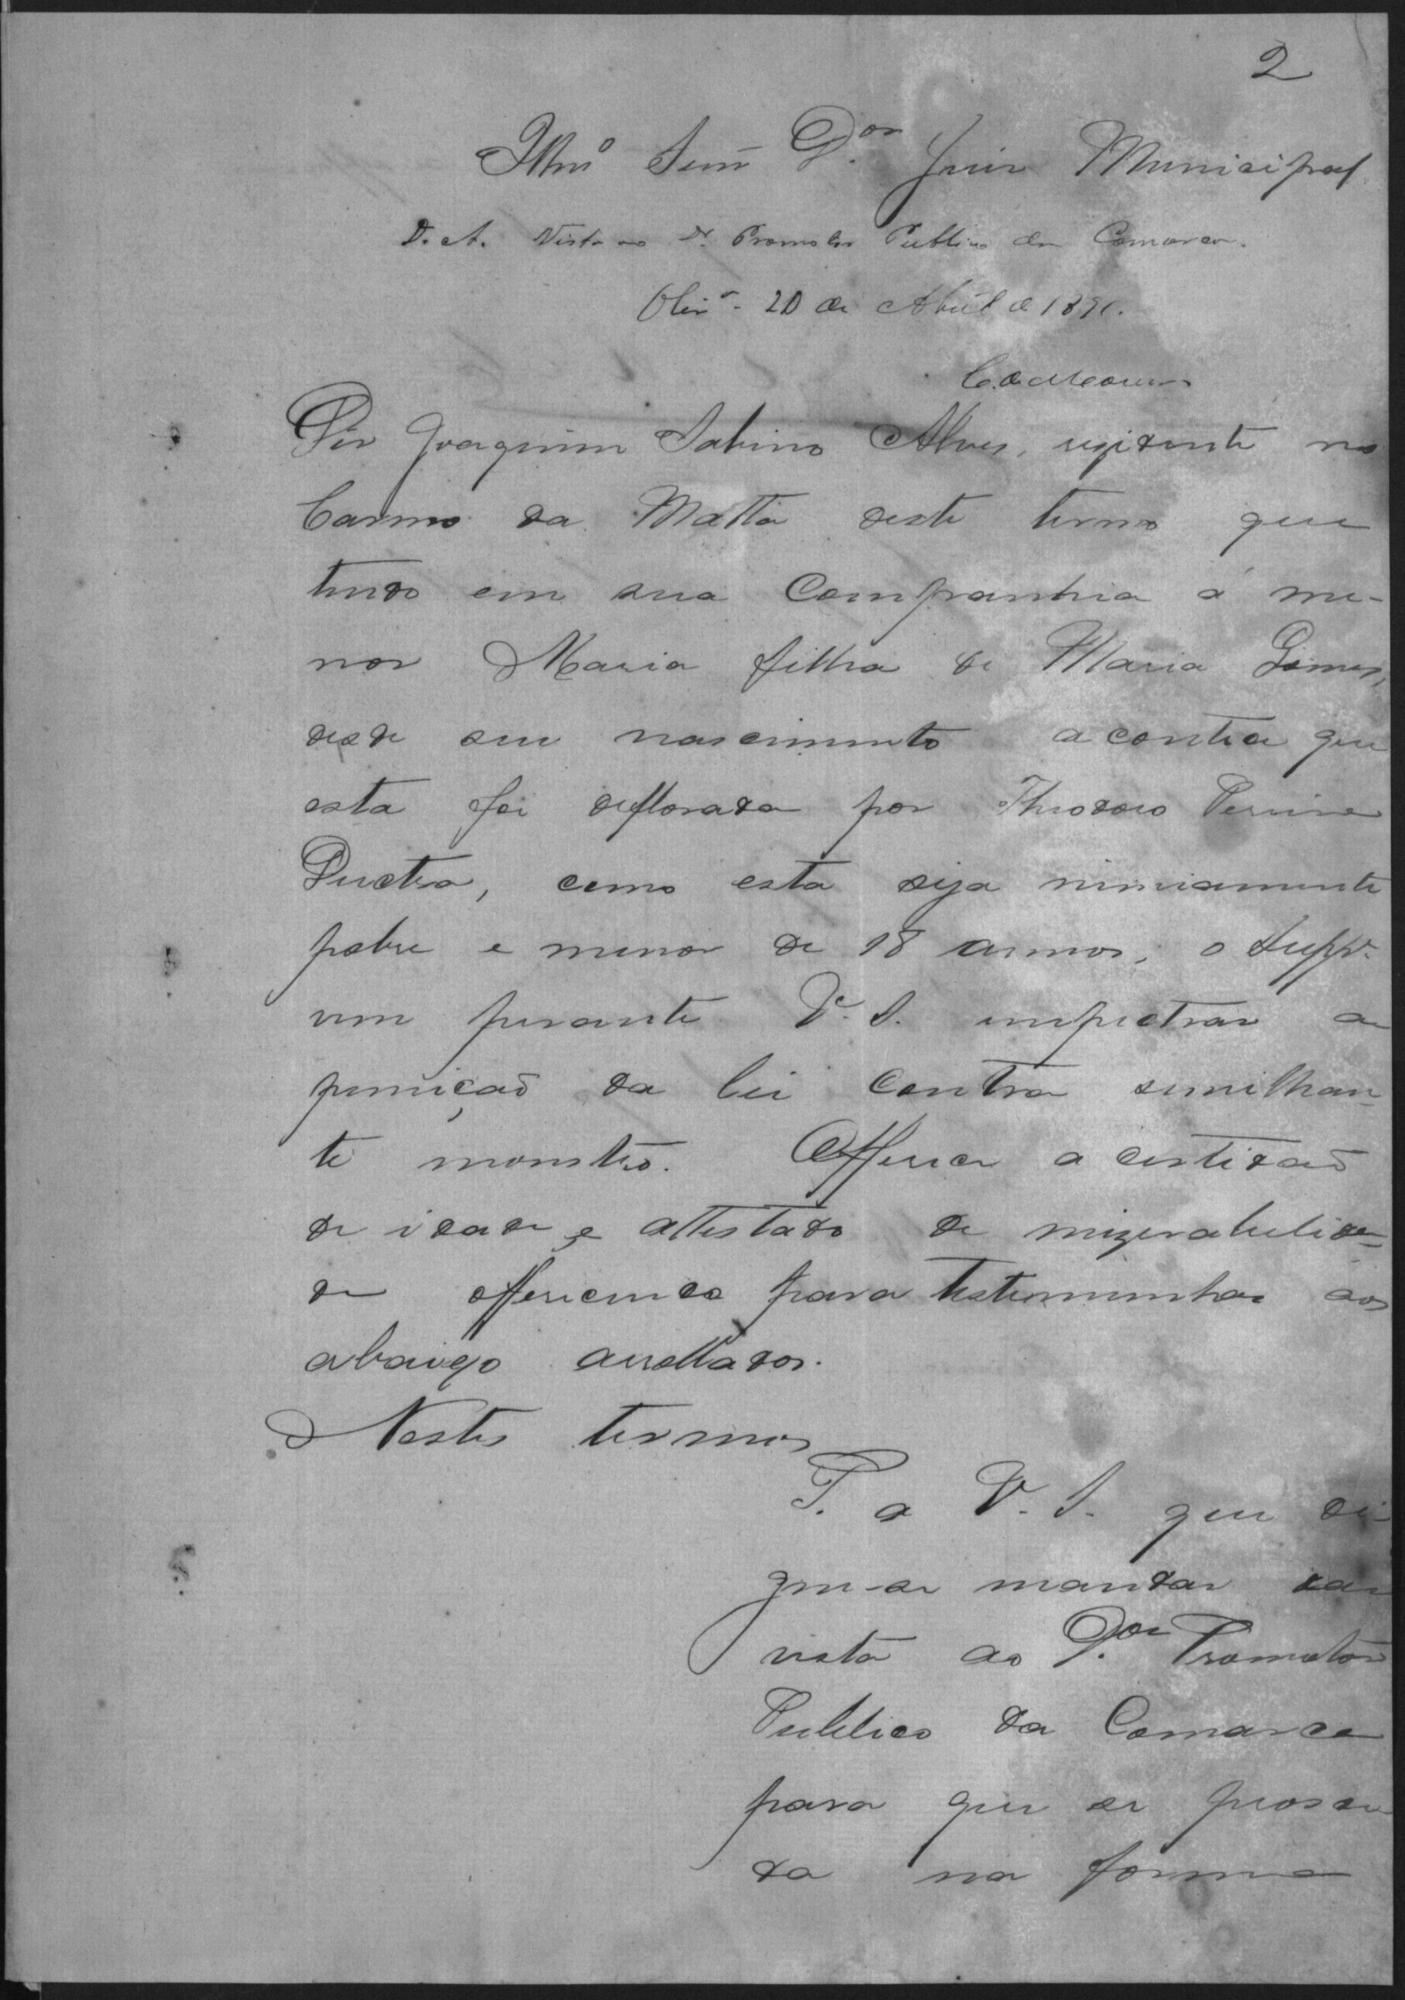 2
Illmº Senr Dor Juis Municipal
D. A. Vista ao Dr. Promotor Publico da Comarca.
Olivª. 20 de Abril de 1891.
Diz Joaquim Sabino Alves, rezidente no
Carmo da Matta deste termo que
tendo em sua Companhia á me-
nor Maria filha de Maria Gomes,
desde seu nascimento acontia que
esta foi deflorada por Theodoro Pereira
Puctra, como esta seja nimiamente
pobre e menor de 18 annos, o Suppe.
vem perante V. S. impetrar a
punição da lei contra similhan-
te monstro. Offerece a certidaõ
de idade, e attestado de mizerabelida-
de offericendo para testemunhas aos
abaixo arrollados.
Nestes termos
P. a V. S. que di-
gne-se mandar dar
vista ao Dor Promotor
Publico da Comarca
para que se proce-
da na forma